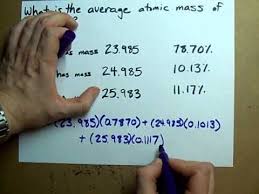 What is the average atomic mass of
?
has mass 23.985 78.70%
has mass 24.985 10.13%
25.983 11.17%
(23.985)(0.7870) + (24.985)(0.1013)
+ (25.983)(0.1117)